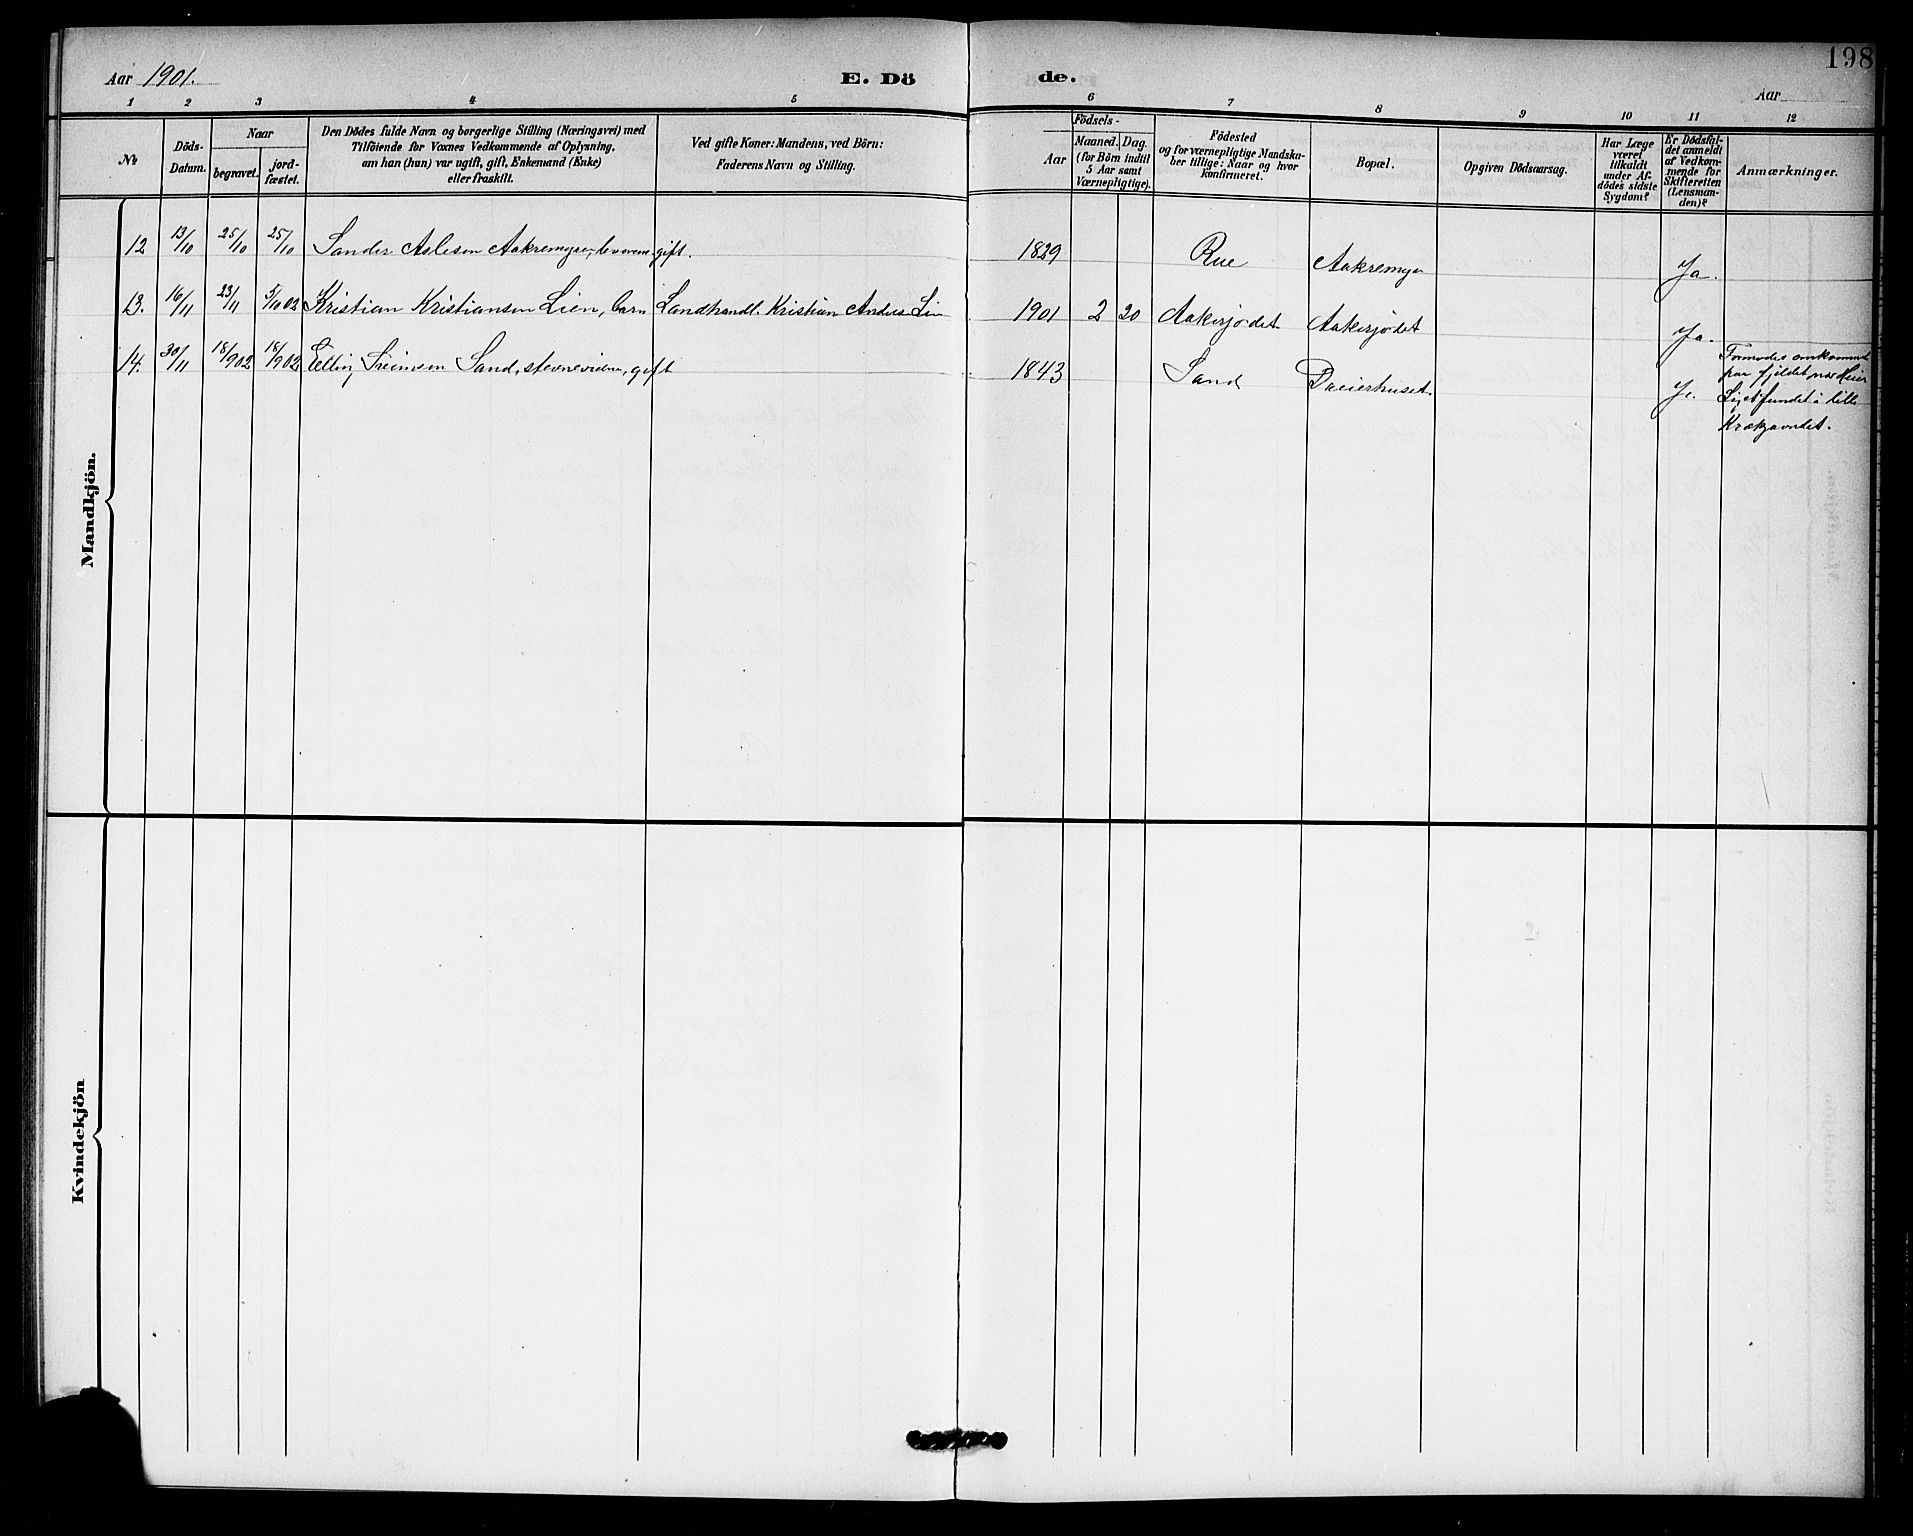 198
Aar 1901. E. Dö de. Aar
1 2 3 4 5 6 7 8 9 10 11 12
No
Döds-Datum.
Naar
begravet.
jord-fæstet.
Den Dödes fulde Navn og borgerlige Stilling (Næringsvei) med
Tilföiende for Voxnes Vedkommende af Oplysning,
om han (hun) var ugift, gift, Enkemand (Enke)
eller fraskilt.
Ved gifte Koner: Mandens, ved Börn:
Faderens Navn og Stilling.
Födsels-
Aar
Maaned. Dag.
(for Börn indtil
5 Aar samt
Værnepligtige).
Födested
og for værnepligtige Mandska-
ber tillige: Naar og hvor
konfirmeret.
Bopæl.
Opgiven Dödsaarsag.
Har Læge
været
tilkaldt
under Af-
dödes sidste
Sygdom?
Er Dödsfal-
det anmeldt
af Vedkom-
mende for
Skifteretten
(Lensman-
den)?
Anmærkninger.
Mandkjön.
12 13/10 25/10 25/10 Sander Asleson Aakremyre, gift. 1829 Rue Aakremyr Ja.
13. 16/11 23/11 5/10 02 Kristian Kristianson Lien, barn Landhandl. Kristian Anders. Lien 1901 2 20 Aakerjordet Aakerjordet Ja.
14. 30/11 18/9 02 18/9 02 Elling Sand, gift 1843 Sand Dreierhuset Ja.
Formodes omkommet
paa fjeldet
Liget fundet i lille
Krækjavndet.
Kvindekjön